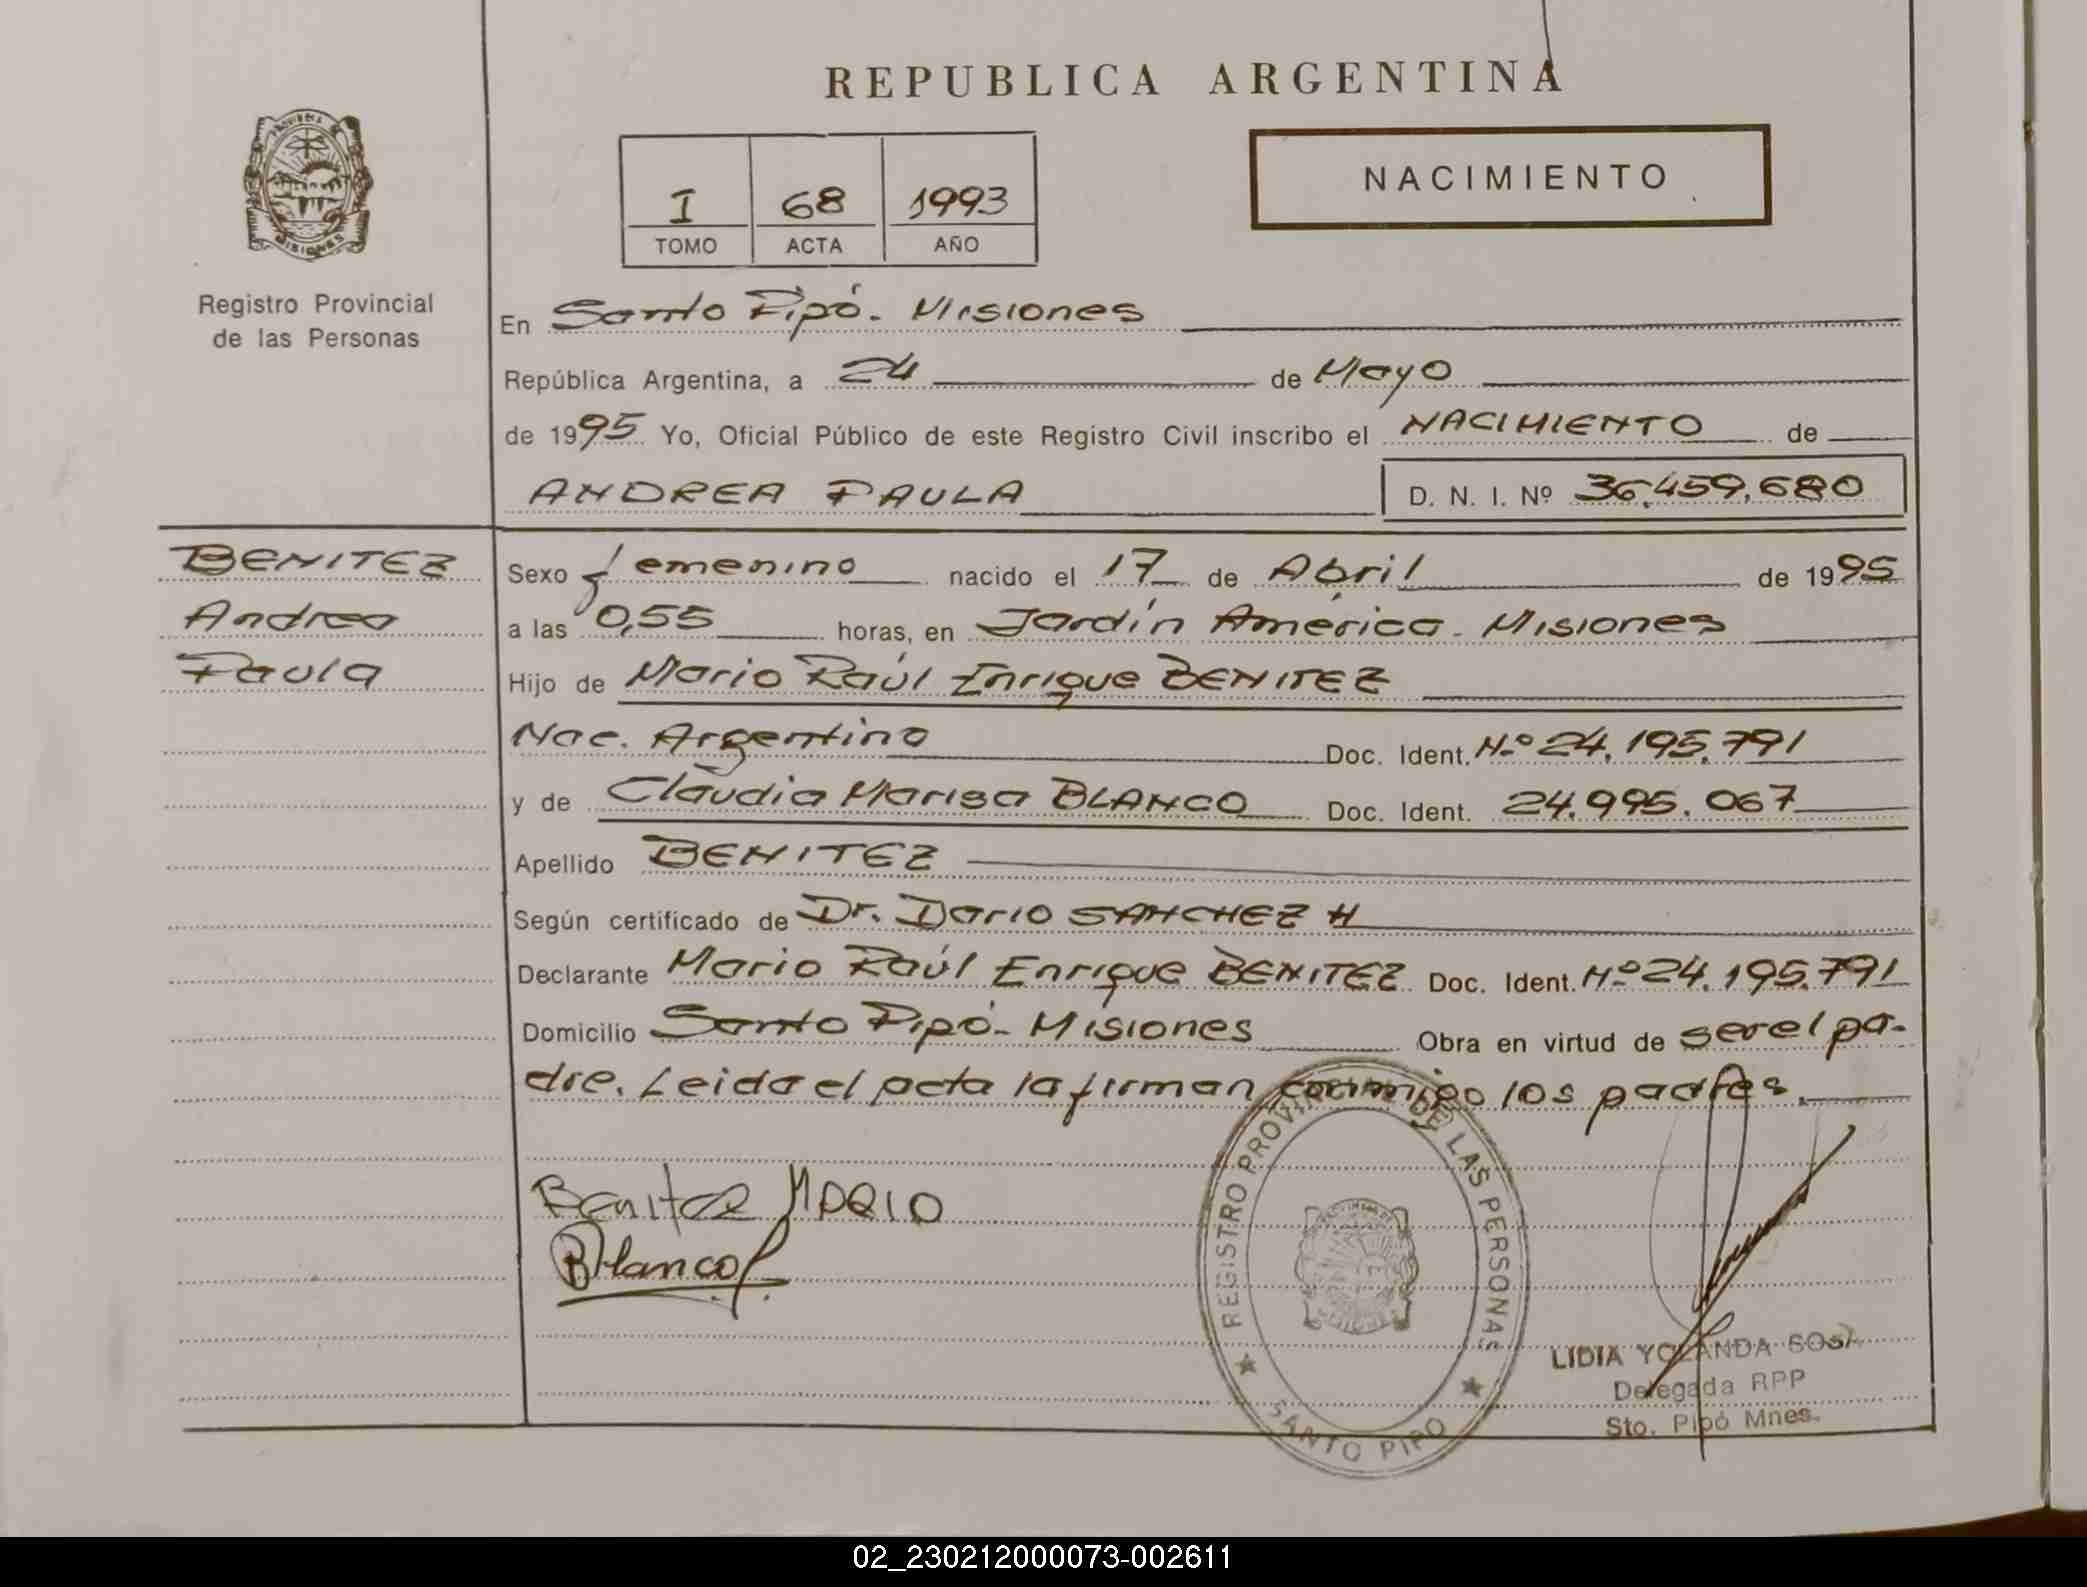 REPUBLICA ARGENTINA
NACIMIENTO
I 68 1993
TOMO ACTA AÑO
Registro Provincial
de las Personas
En Santo Pipó. Misiones
República Argentina, a 24 de Mayo
de 1995 Yo, Oficial Público de este Registro Civil inscribo el NACIMIENTO de
ANDREA PAULA D. N. I. Nº 36.459.680
BENITEZ
Andrea
Paula
Sexo femenino nacido el 17 de Abril de 1995
a las 0,55 horas, en Jardín América. Misiones
Hijo de Mario Raúl Enrique BENITEZ
Nac. Argentino Doc. Ident. Nº 24.195.791
y de Claudia Marisa BLANCO Doc. Ident. 24.995.067
Apellido BENITEZ
Según certificado de Dr. Dario SANCHEZ H
Declarante Mario Raúl Enrique BENITEZ Doc. Ident. Nº 24.195.791
Domicilio Santo Pipó - Misiones Obra en virtud de ser el pa-
dre. Leida el acta la firman conmigo los padres.
Benitez MARIO
Blanco
REGISTRO PROVINCIAL DE LAS PERSONAS
SANTO PIPO
LIDIA YOLANDA SOSA
Delegada RPP
Sto. Pipó Mnes.
02_230212000073-002611